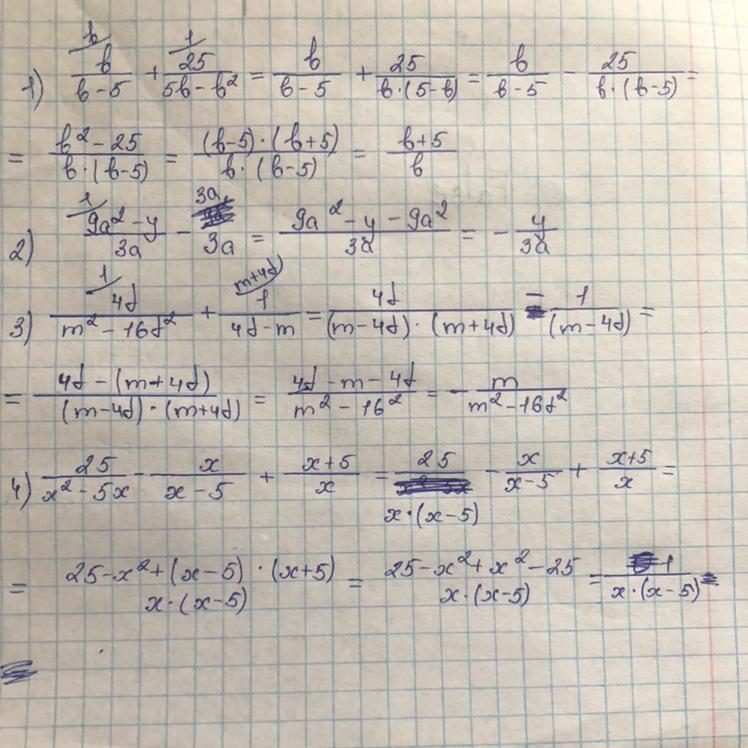 1) b/(b-5) + 25/(5b-b²) = b/(b-5) + 25/(b·(5-b)) = b/(b-5) - 25/(b·(b-5)) =
= (b²-25)/(b·(b-5)) = ((b-5)·(b+5))/(b·(b-5)) = (b+5)/b
2) (9a²-y)/3a - 3a = (9a²-y-9a²)/3a = -y/3a
3) 4d/(m²-16d²) + 1/(4d-m) = 4d/((m-4d)·(m+4d)) - 1/(m-4d) =
= (4d-(m+4d))/((m-4d)·(m+4d)) = (4d-m-4d)/(m²-16²) = -m/(m²-16d²)
4) 25/(x²-5x) - x/(x-5) + (x+5)/x = 25/(x·(x-5)) - x/(x-5) + (x+5)/x =
= (25-x²+(x-5)·(x+5))/(x·(x-5)) = (25-x²+x²-25)/(x·(x-5)) = 1/(x·(x-5))